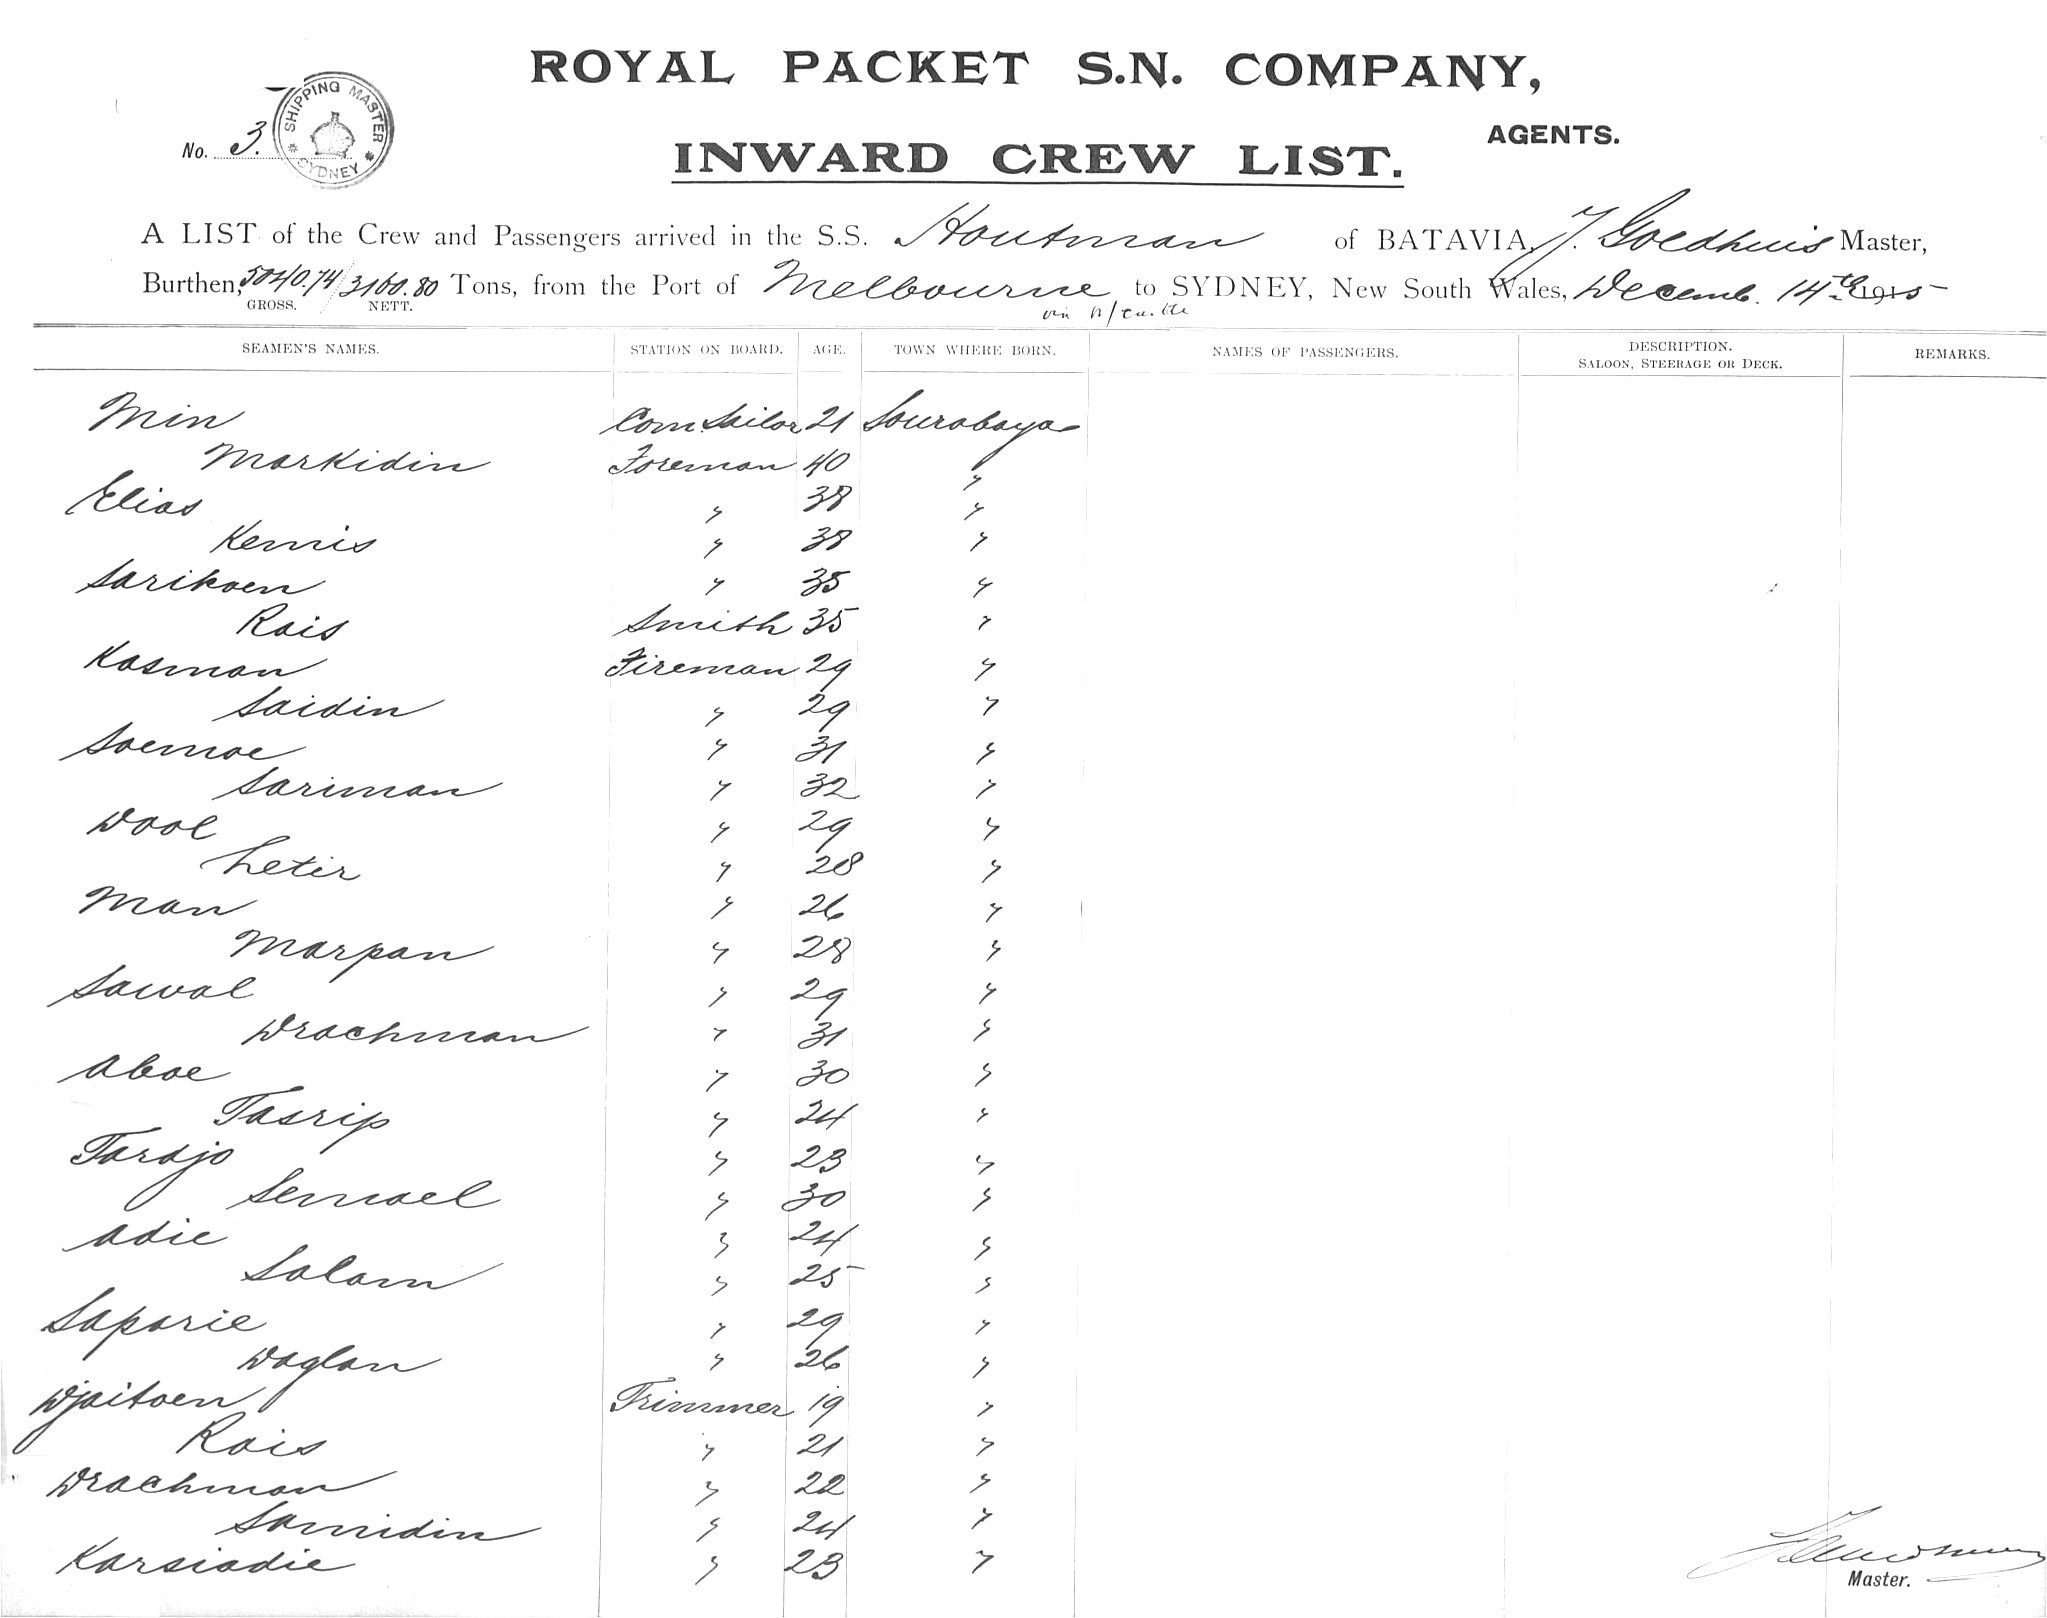 ROYAL PACKET S.N. COMPANY,
AGENTS.
No. 3.
SHIPPING MASTER SYDNEY
INWARD CREW LIST.
A LIST of the Crew and Passengers arrived in the S.S. Houtman of BATAVIA, J. Goedhuis Master,
Burthen, 5040.74/3160.80 Tons, from the Port of Melbourne to SYDNEY, New South Wales, Decemb. 14th 1915
GROSS. NETT. via N/castle
SEAMEN'S NAMES. STATION ON BOARD. AGE. TOWN WHERE BORN. NAMES OF PASSENGERS. DESCRIPTION. SALOON, STEERAGE OR DECK. REMARKS.
Min Com. Sailor 21 Sourabaya
Markidin Foreman 40 "
Elias " 38 "
Kemis " 38 "
Sarikoen " 35 "
Rais Smith 35 "
Kasman Fireman 29 "
Saidin " 29 "
Soemoe " 31 "
Sariman " 32 "
Dool " 29 "
Letir " 28 "
Man " 26 "
Marpan " 28 "
Sawal " 29 "
Drachman " 31 "
Aboe " 30 "
Tasrip " 24 "
Tardjo " 23 "
Semael " 30 "
Adie " 24 "
Salam " 25 "
Saparie " 29 "
Daglan " 26 "
Djaitoen Trimmer 19 "
Rais " 21 "
Drachman " 22 "
Samidin " 24 "
Karsiadie " 23 "
Master.